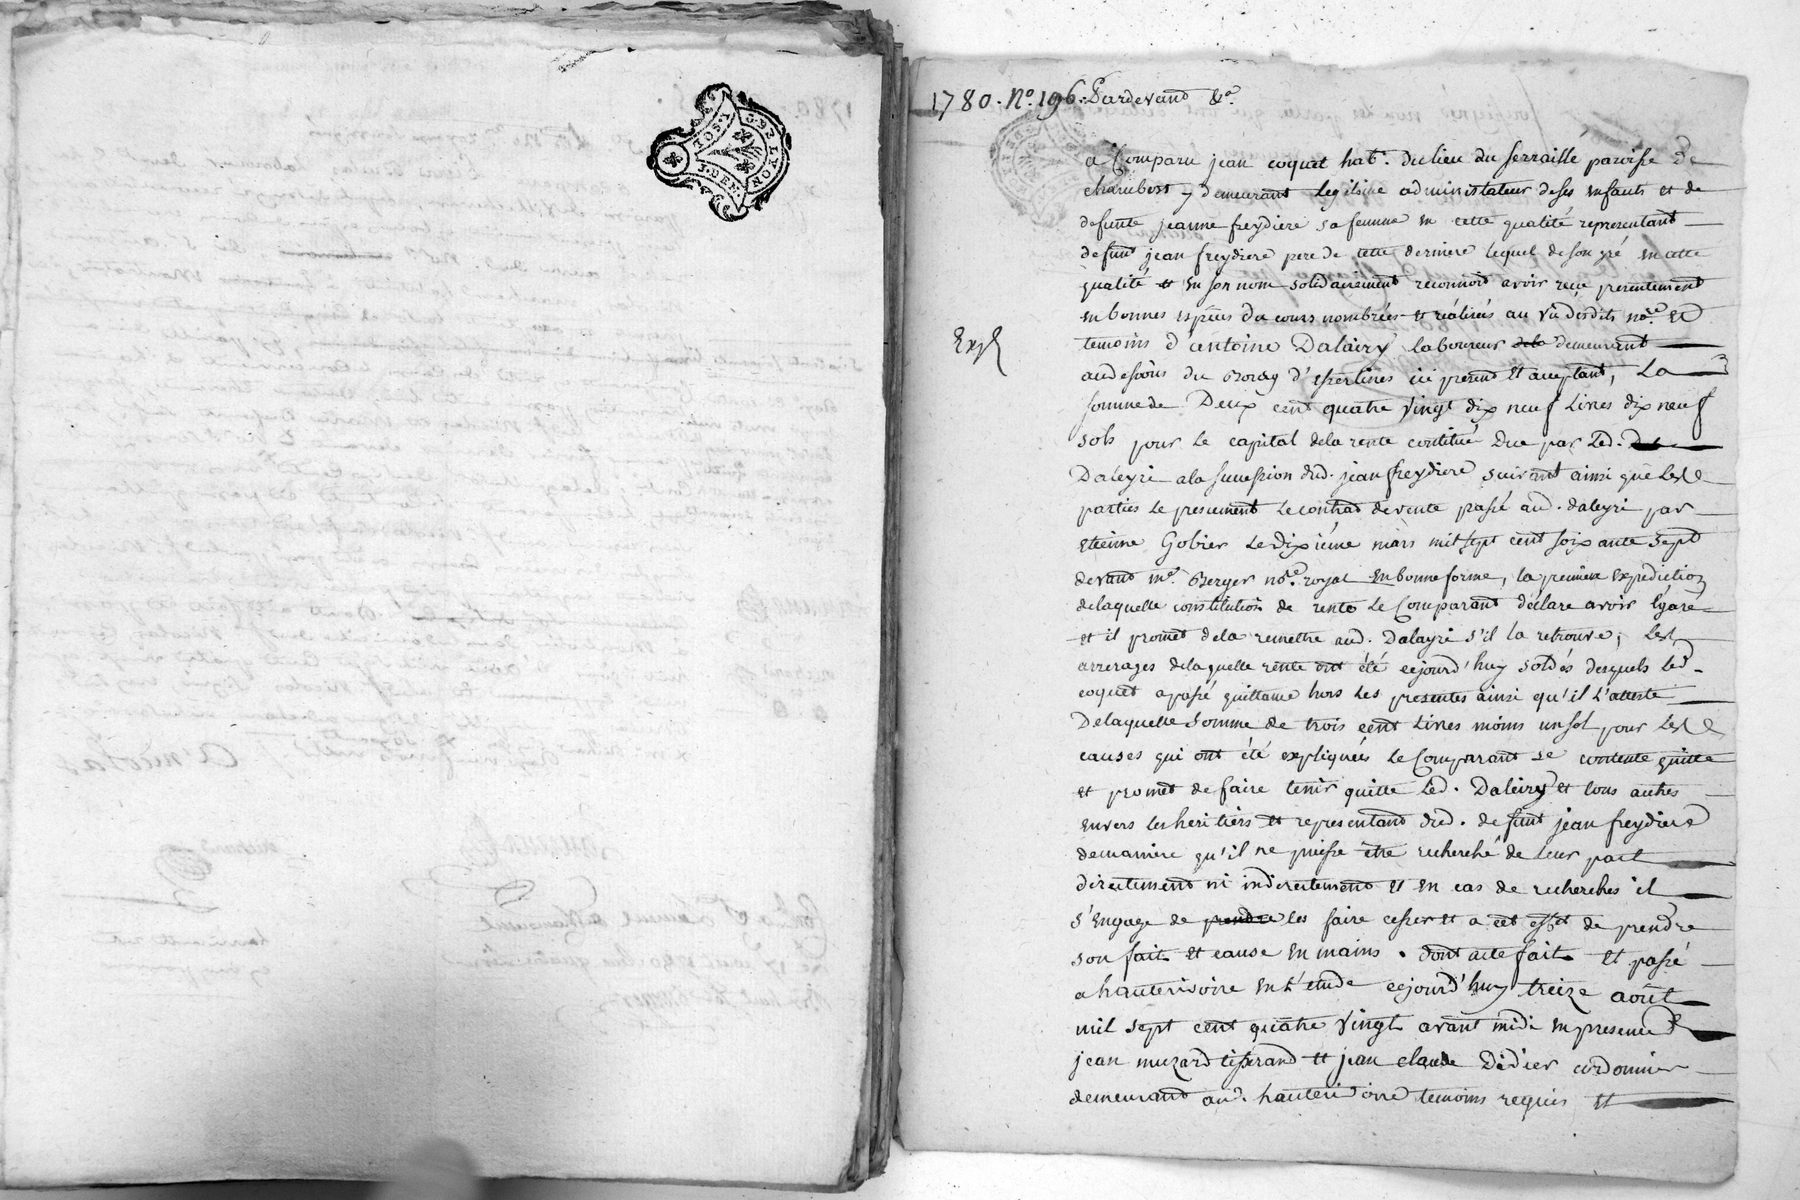 G. DE LYON
TOS. Y
3. DEN.
1780. No. 196. Pardevand &a.
a Comparu jean coquet habt. du lieu du serraille paroisse de
chambost y demeurant legitime administrateur de ses enfants et de
defunte jeanne freydiere sa femme en cette qualité representant
defunt jean freydiere pere de cette derniere lequel de son gré en cette
qualité et en son nom solidairement reconnoit avoir reçu presentement
en bonnes espèces du cours nombrées et réalisées au vû desdits nore. et
temoins d'antoine Dalairy laboureur demeurant
Exp
audessous du Bourg d'essertines ici present et acceptant, La
somme de Deux cent quatre vingt dix neuf Livres dix neuf
sols pour Le capital de la rente constitué due par Led.
Daleyri a la succession dud. jean freydiere suivant ainsi que Les
parties Le prescument Le contrad de vente passé aud. daleyri par
etienne Gobier Le dixième mars mil sept cent soixante sept
devand me. Berger nore. royal en bonne forme, la premiere expediction
de laquelle constitution de rente Le Comparant déclare avoir égaré
et il promet de la remettre aud. Dalayri s'il la retrouve, Les
arrerages de laquelle rente ont été cejourd'huy soldés desquels Led.
coquet a passé quittance hors Les presentes ainsi qu'il L'atteste
De laquelle somme de trois cent Livres moins un sol pour Les
causes qui ont été expliquées Le Comparant se contente quitte
et promet de faire tenir quitte Led. Daleiry et tous autres
envers les heritiers et representand dud. defunt jean freydiere
de maniere qu'il ne puisse être recherché de Leur part
directement ni indirectement et en cas de recherches il
s'engage de prendre les faire cesser et a cet effet de prendre
son fait et cause en mains. dont acte fait et passé
a hauterivoire en L'etude cejourd'huy treize août
mil sept cent quatre vingt avant midi en presence de
jean muzard tisserand et jean claude Didier cordonnier
demeurant aud. hauterivoire temoins requis et